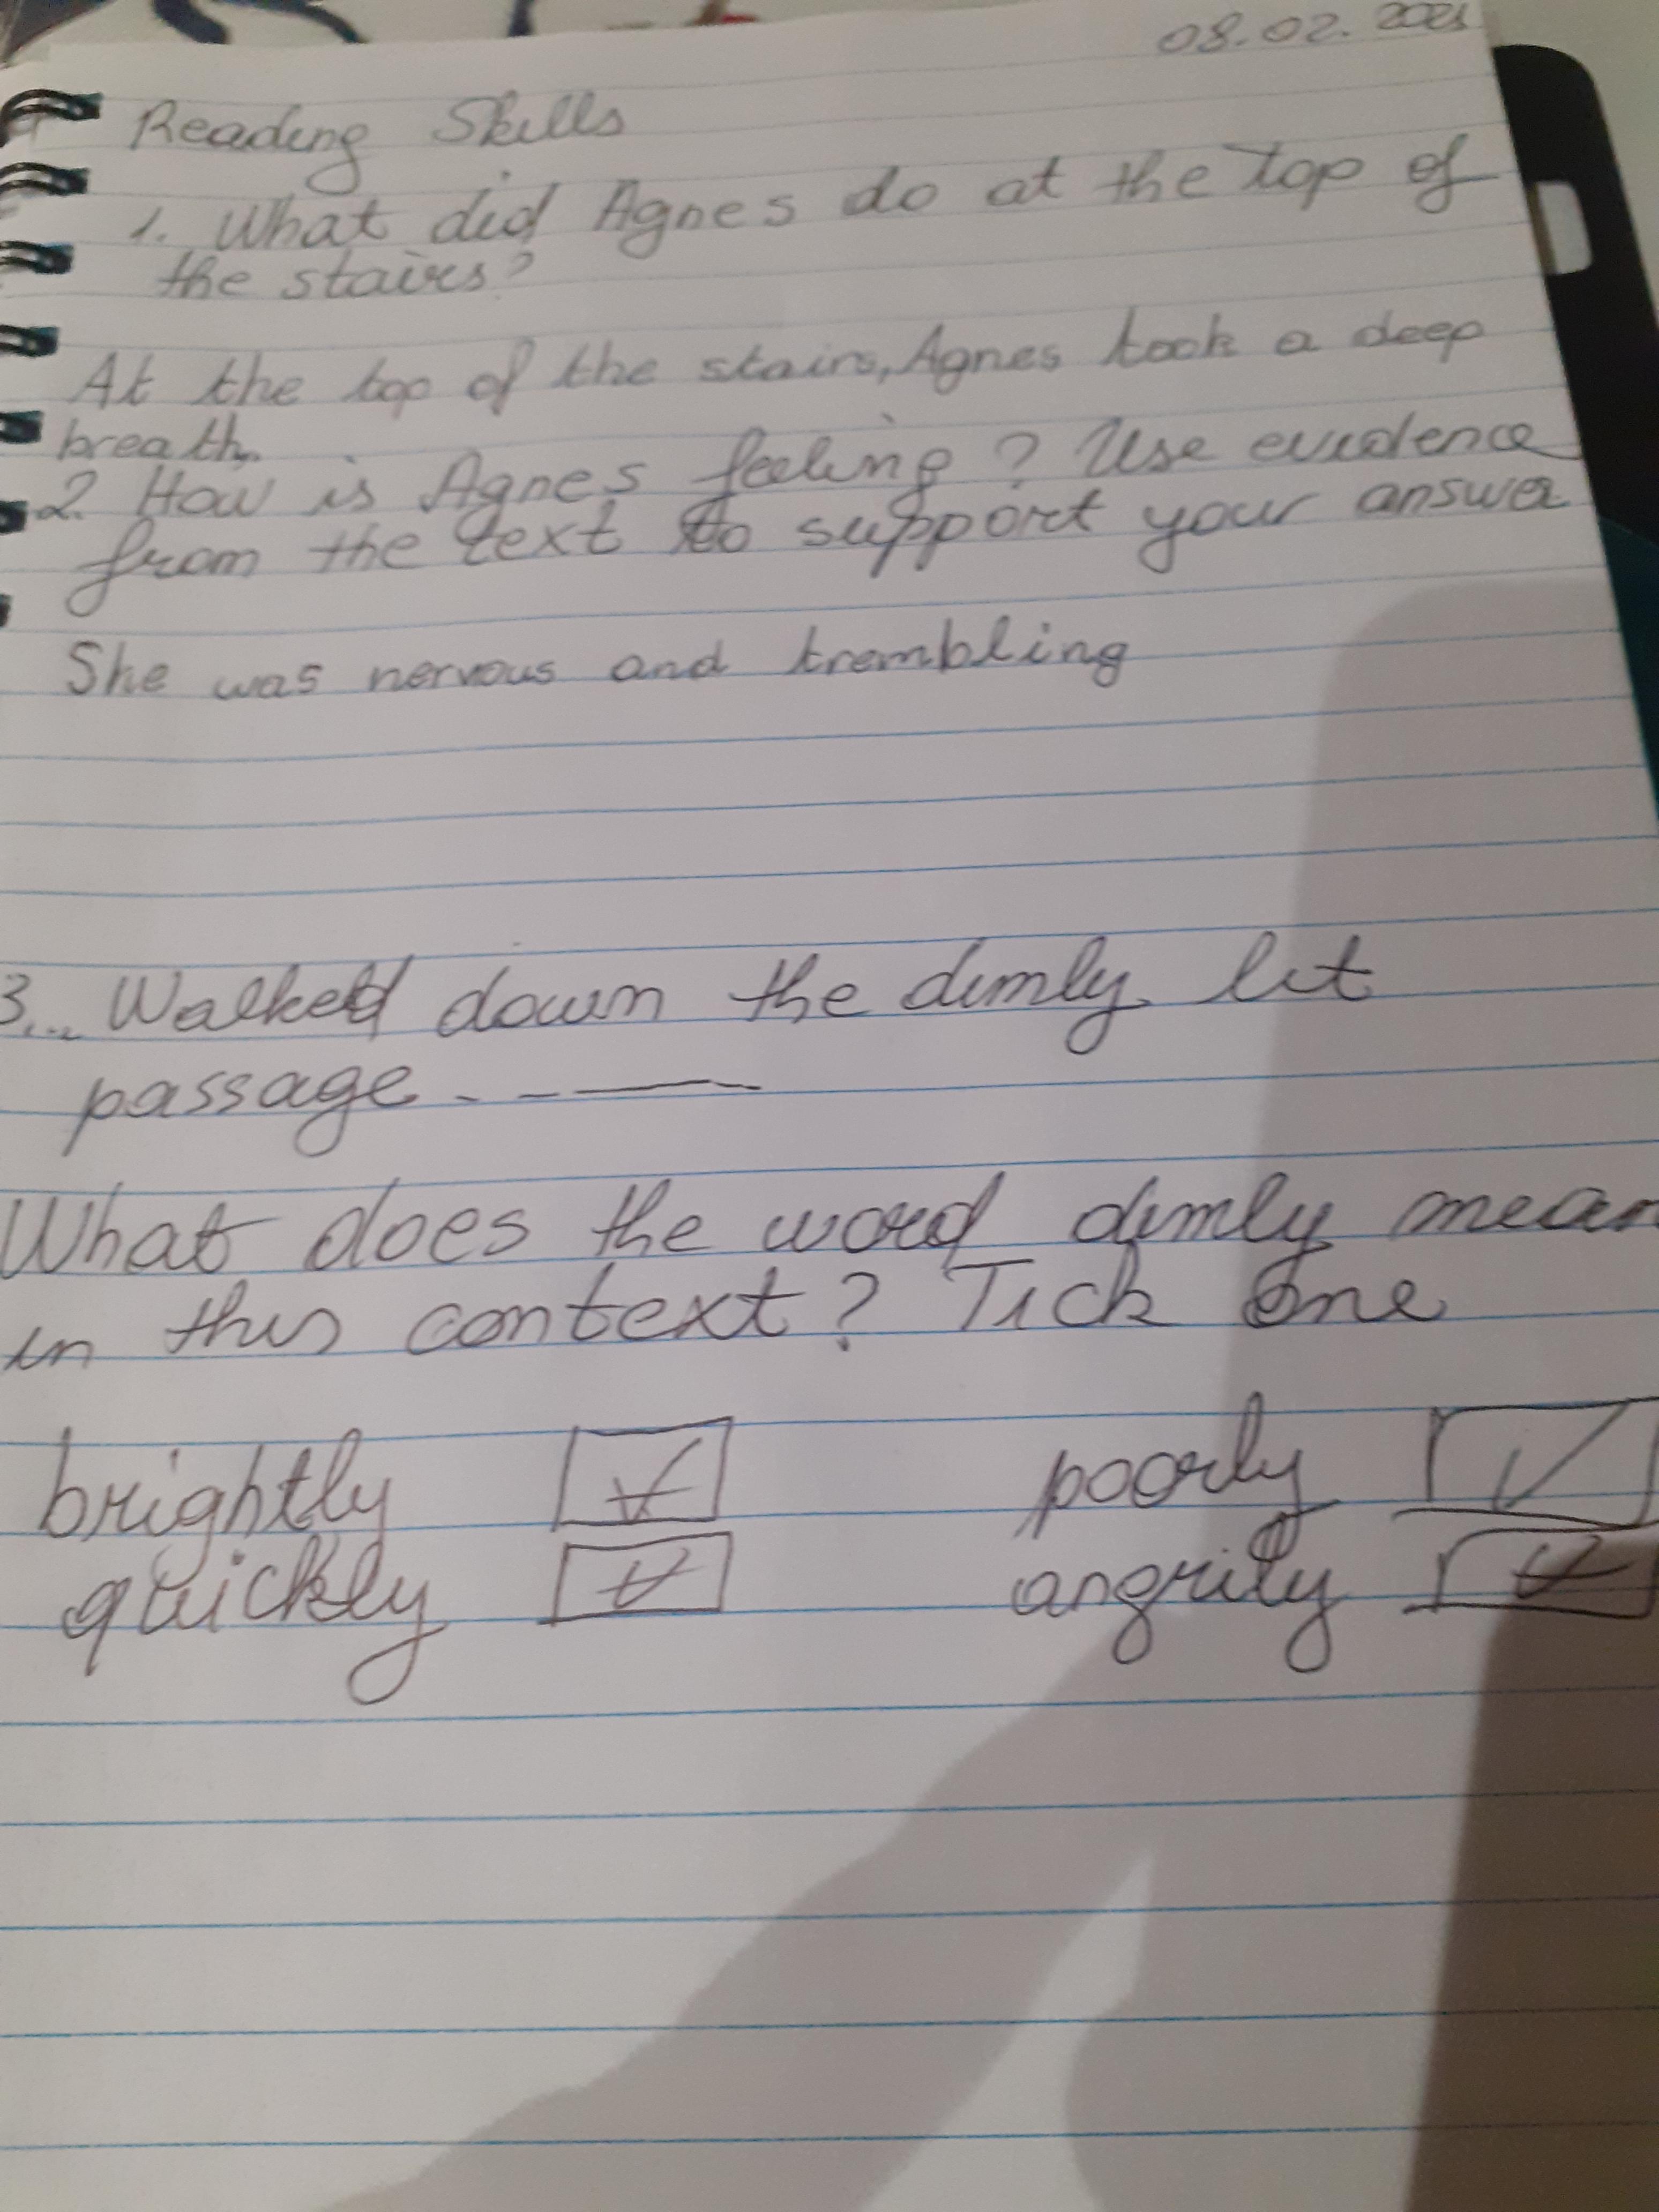 08.02.2021
Reading Skills
1. What did Agnes do at the top of
the stairs?
At the top of the stairs, Agnes took a deep
breath.
2. How is Agnes feeling? Use evidence
from the text to support your answer
She was nervous and trembling
3... Walked down the dimly lit
passage - - —
What does the word dimly mean
in this context? Tick One
brightly ✓ poorly ✓
quickly ✓ angrily ✓